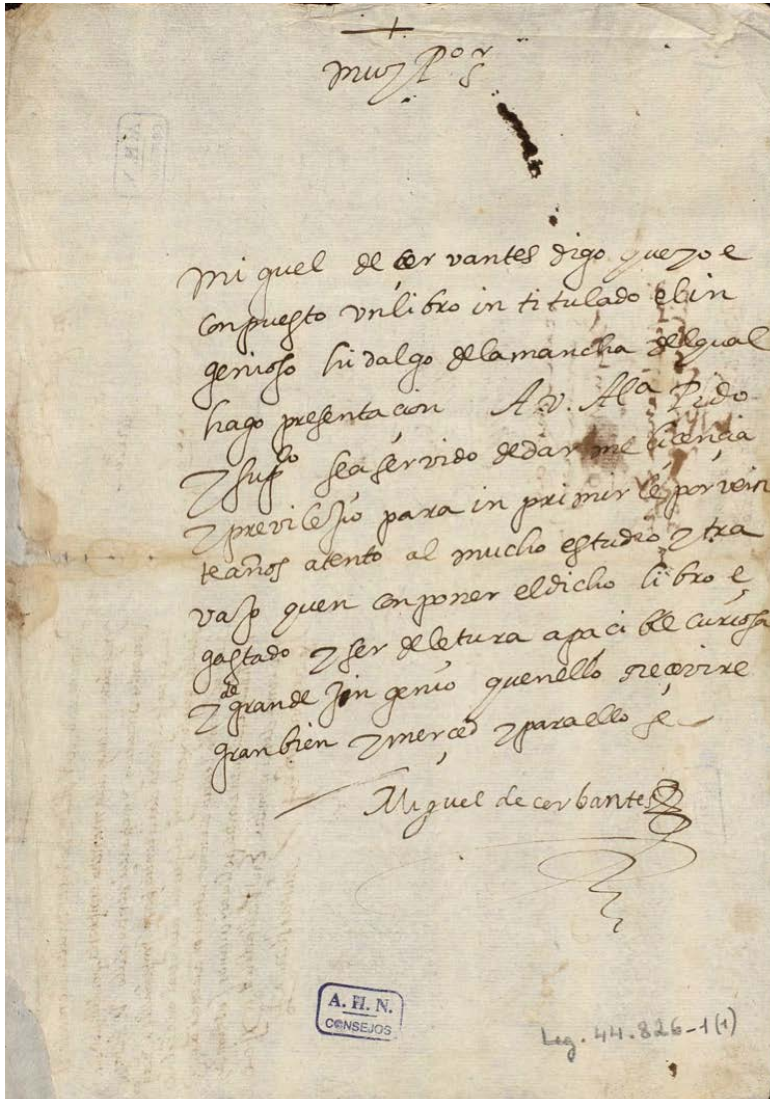 +
muy Por S
Miguel de cervantes digo que yo e
conpuesto vn libro intitulado el in
genioso hidalgo de la mancha del qual
hago presentacion A. v. Ala Pido
y supco sea servido de darme licencia
y previlejio para inprimirle por vein
te años atento al mucho estudio y tra
vajo quen conponer el dicho libro e
gastado y ser de letura apacible curiosa
y de grande injenio quenello recivire
gran bien y merced y para ello
Miguel de cerbantes
A. H. N.
CONSEJOS
Leg. 44.826-1(1)